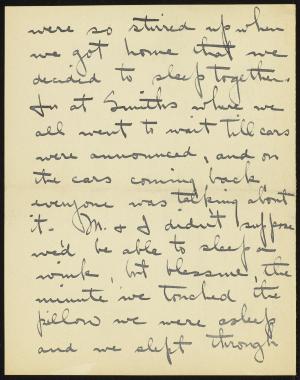 were so stirred up when
we got home that we
decided to sleep together.
In at Smiths where we
all went to wait till cars
were announced, and on
the cars coming back
everyone was talking about
it. M. & I didn't suppose
we'd be able to sleep a
wink, but bless me, the
minute we touched the
pillow we were asleep
and we slept through